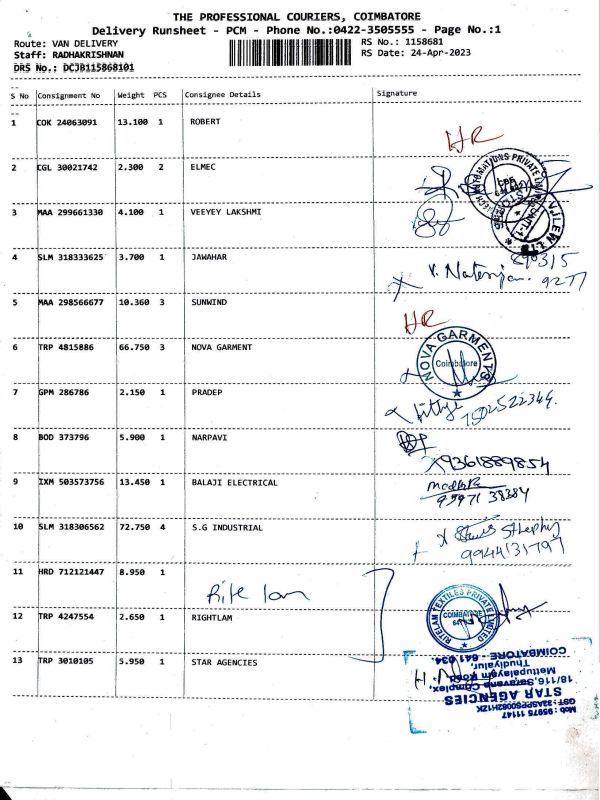 THE PROFESSIONAL COURIERS, COIMBATORE
Delivery Runsheet - PCM - Phone No.:0422-3505555 - Page No.:1
Route: VAN DELIVERY
RS No.: 1158681
Staff: RADHAKRISHNAN
RS Date: 24-Apr-2023
DRS No.: DCJB115868101
S No Consignment No Weight PCS Consignee Details Signature
1 COK 24063091 13.100 1 ROBERT
HR
2 CGL 30021742 2.300 2 ELMEC
3 MAA 299661330 4.100 1 VEEYEY LAKSHMI
4 SLM 318333625 3.700 1 JAWAHAR
9277
5 MAA 298566677 10.360 3 SUNWIND
HR
6 TRP 4815886 66.750 3 NOVA GARMENT
NOVA GARMENTS
Coimbatore
7 GPM 286786 2.150 1 PRADEP
7502522349
8 BOD 373796 5.900 1 NARPAVI
9361889854
9 IXM 503573756 13.450 1 BALAJI ELECTRICAL
95971 38384
10 SLM 318306562 72.750 4 S.G INDUSTRIAL
9944131797
11 HRD 712121447 8.950 1
Rite lam
12 TRP 4247554 2.650 1 RIGHTLAM
RITELAM TEXTILES PRIVATE LIMITED
COIMBATORE
13 TRP 3010105 5.950 1 STAR AGENCIES
Mob : 95975 11147
STAR AGENCIES
18/116, Saravana Complex,
Mettupalayam Road
Thudiyalur,
COIMBATORE - 641 034.